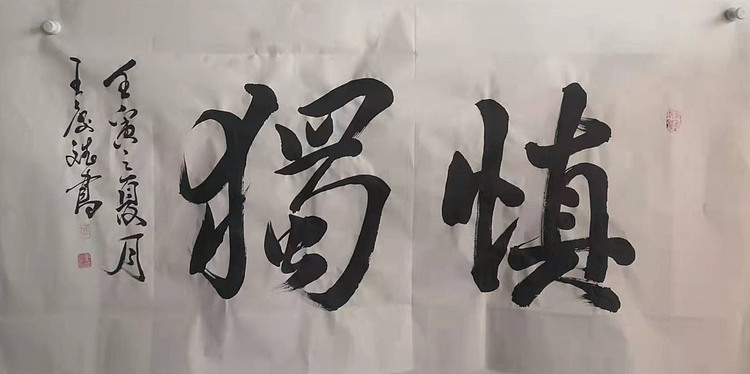 慎獨
壬寅之夏月
王慶
書